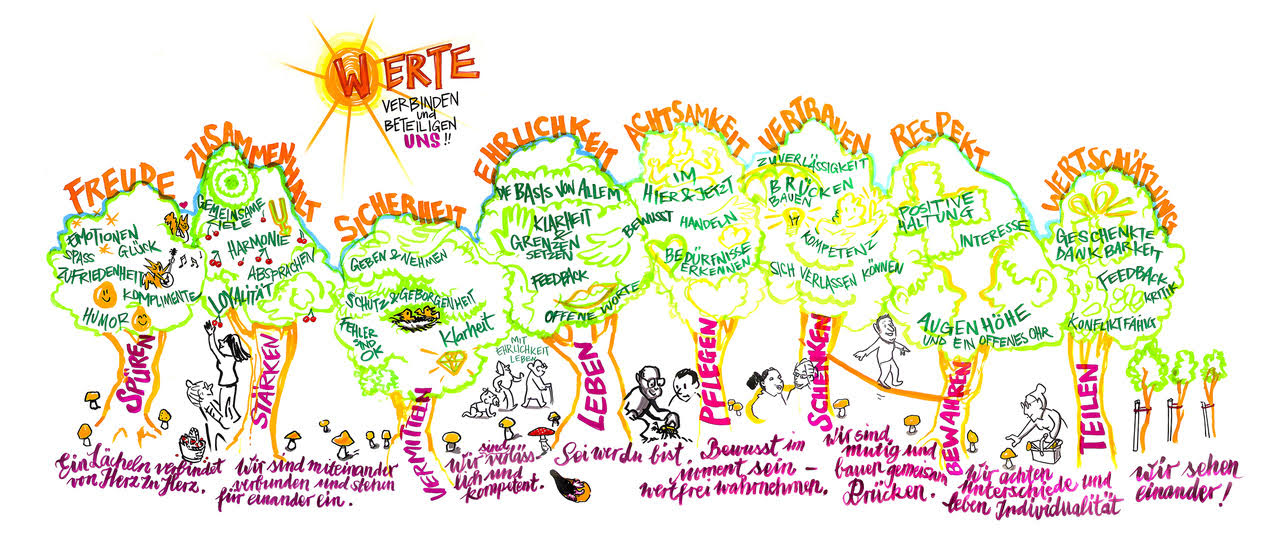 WERTE
VERBINDEN
und
BETEILIGEN
UNS!!
FREUDE
EMOTIONEN
SPASS GLÜCK
ZUFRIEDENHEIT
KOMPLIMENTE
HUMOR
SPÜREN
Ein Lächeln verbindet
von Herz zu Herz.
ZUSAMMENHALT
GEMEINSAME
ZIELE
HARMONIE
ABSPRACHEN
LOYALITÄT
STÄRKEN
Wir sind miteinander
verbunden und stehen
für einander ein.
SICHERHEIT
GEBEN & NEHMEN
SCHUTZ & GEBORGENHEIT
FEHLER
SIND
OK
Klarheit
VERMITTELN
sind
Wir verläss
lich und
kompetent.
EHRLICHKEIT
DIE BASIS VON ALLEM
KLARHEIT
&
GRENZEN
SETZEN
FEEDBACK
OFFENE WORTE
MIT
EHRLICHKEIT
LEBEN
LEBEN
Sei wer du bist.
ACHTSAMKEIT
IM
HIER & JETZT
BEWUSST HANDELN
BEDÜRFNISSE
ERKENNEN
PFLEGEN
Bewusst im
moment sein –
wertfrei wahrnehmen.
VERTRAUEN
ZUVERLÄSSIGKEIT
BRÜCKEN
BAUEN
KOMPETENZ
SICH VERLASSEN KÖNNEN
SCHENKEN
Wir sind
mutig und
bauen gemeinsam
Brücken.
RESPEKT
POSITIVE
HALTUNG
INTERESSE
AUGENHÖHE
UND EIN OFFENES OHR
BEWAHREN
Wir achten
Unterschiede und
leben Individualität
WERTSCHÄTZUNG
GESCHENKTE
DANKBARKEIT
FEEDBACK
KRITIK
KONFLIKTFÄHIG
TEILEN
Wir sehen
einander!